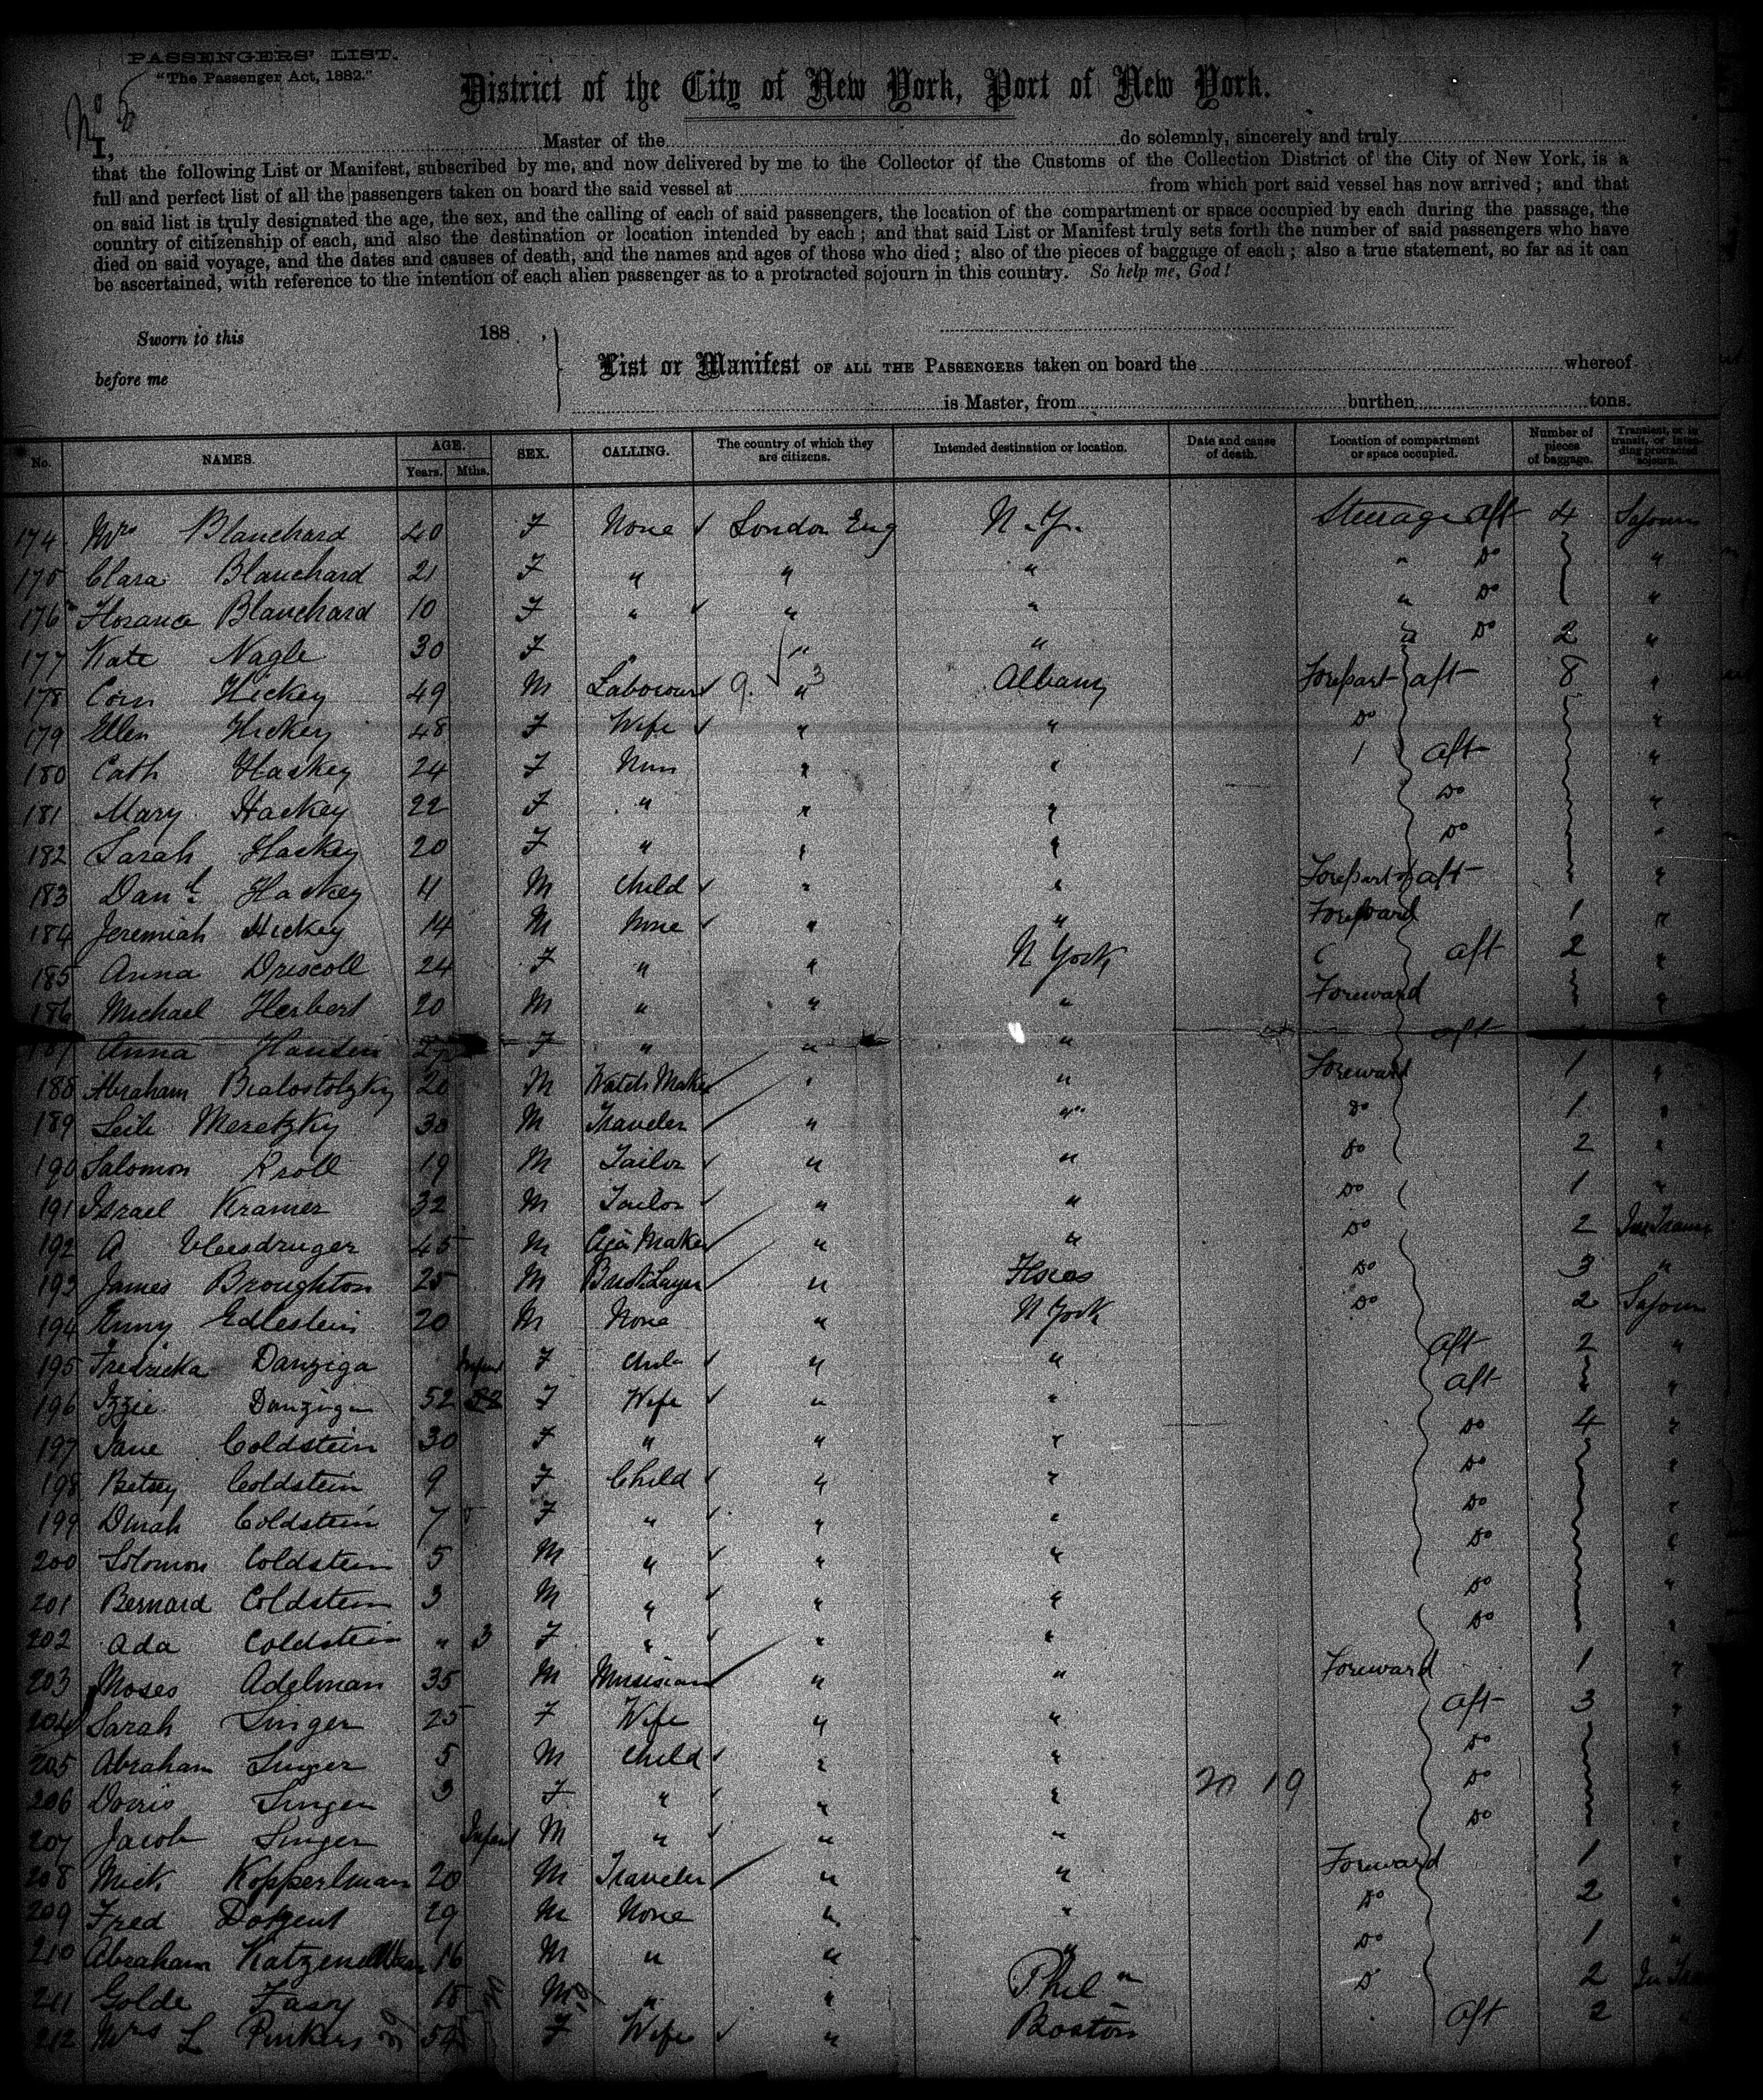 PASSENGERS' LIST.
"The Passenger Act, 1882."
No 5
District of the City of New York, Port of New York.
I, Master of the do solemnly, sincerely and truly
that the following List or Manifest, subscribed by me, and now delivered by me to the Collector of the Customs of the Collection District of the City of New York, is a
full and perfect list of all the passengers taken on board the said vessel at from which port said vessel has now arrived; and that
on said list is truly designated the age, the sex, and the calling of each of said passengers, the location of the compartment or space occupied by each during the passage, the
country of citizenship of each, and also the destination or location intended by each; and that said List or Manifest truly sets forth the number of said passengers who have
died on said voyage, and the dates and causes of death, and the names and ages of those who died; also of the pieces of baggage of each; also a true statement, so far as it can
be ascertained, with reference to the intention of each alien passenger as to a protracted sojourn in this country. So help me, God!
Sworn to this 188 ,
before me
List or Manifest OF ALL THE PASSENGERS taken on board the whereof
is Master, from burthen tons.
No. NAMES. AGE. Years. Mths. SEX. CALLING. The country of which they are citizens. Intended destination or location. Date and cause of death. Location of compartment or space occupied. Number of pieces of baggage. Transient, or in transit, or intending protracted sojourn.
174 Mrs Blanchard 40 F None London Eng N.Y. Steerage aft 4 Sojourn
175 Clara Blanchard 21 F " " " " Do "
176 Florance Blanchard 10 F " " " " Do "
177 Kate Nagle 30 F " " " Do 2 "
178 Corn Hickey 49 M Labourer 9. " 3 Albany Forepart aft 8 "
179 Ellen Hickey 48 F Wife " " Do "
180 Cath Hackey 24 F " " aft "
181 Mary Hackey 22 F " " " Do "
182 Sarah Hackey 20 F " " " Do "
183 Danl Hackey 4 M Child " " Forepart of aft "
184 Jeremiah Hickey 14 M None " " Foreward 1 "
185 Anna Driscoll 24 F " " N York aft 2 "
186 Michael Herbert 20 M " " " Foreward "
187 Anna F " " " aft
188 Abraham Bialostotzky 20 M Watch Maker " " Foreward 1 "
189 Leib Meretzky 30 M Traveler " " Do 1 "
190 Salomon Kroll 19 M Tailor " " Do 2 "
191 Israel Kramer 32 M Tailor " " Do 1 "
192 A 45 M Maker " " Do 2
193 James Broughton 25 M Brick Layer " Do 3 "
194 Edlestein 20 M None " N York Do 2 Sojourn
195 Fredricka Danziga Infant F Child " " aft 2 "
196 Izzie Danziga 52 F Wife " " aft "
197 Jane Coldstein 30 F " " " Do 4 "
198 Betsey Coldstein 9 F Child " " Do "
199 Dinah Coldstein 7 F " " " Do "
200 Solomon Coldstein 5 M " " " Do "
201 Bernard Coldstein 3 M " " " Do "
202 Ada Coldstein " 3 F " " " Do "
203 Moses Adelman 35 M Musician " " Foreward 1 "
204 Sarah Singer 25 F Wife " " aft 3 "
205 Abraham Singer 5 M Child " " Do "
206 Dorris Singer 3 F " " " Do "
207 Jacob Singer Infant M " " " Do "
208 Mick Kopperlman 20 M Traveler " " Foreward 1 "
209 Fred 29 M None " " Do 2 "
210 Abraham 16 M " " " Do 1 "
211 Golde 18 M " " Phila Do 2
212 Mrs L Pinkers 54 F Wife " Boston aft 2